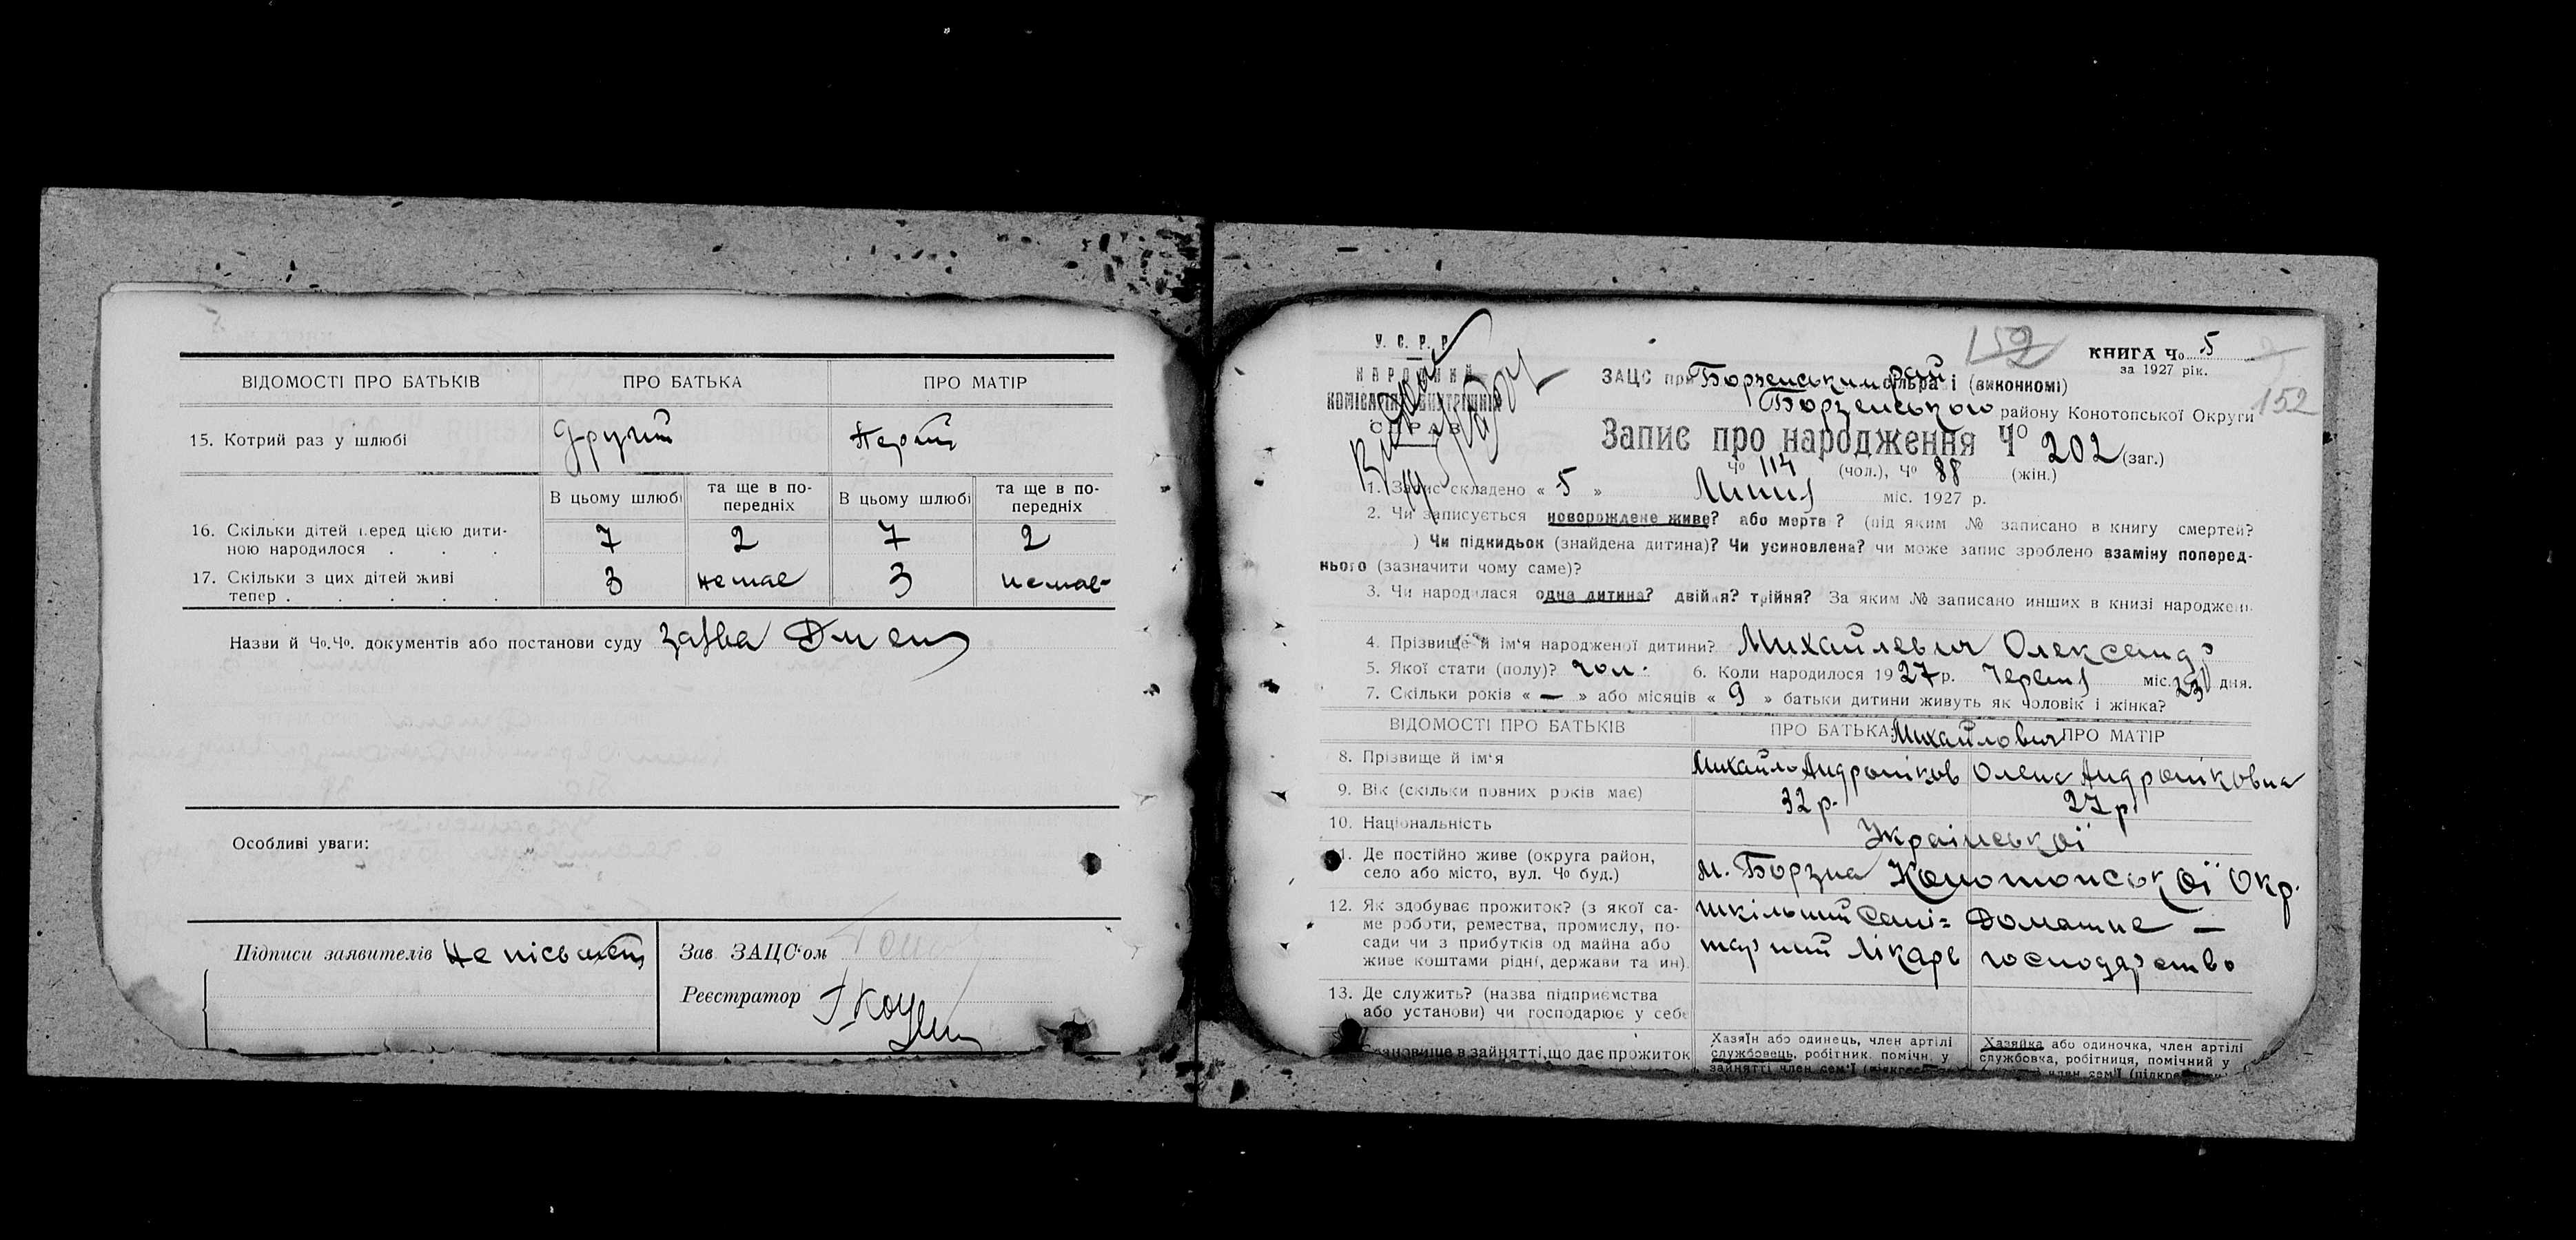 ВІДОМОСТІ ПРО БАТЬКІВ ПРО БАТЬКА ПРО МАТІР
15. Котрий раз у шлюбі Другий Перший
В цьому шлюбі та ще в по-передніх В цьому шлюбі та ще в по-передніх
16. Скільки дітей перед цією дити-
ною народилося . . . 7 2 7 2
17. Скільки з цих дітей живі
тепер . . . . . 3 немає 3 немає
Назви й Чо.Чо. документів або постанови суду заява
Особливі уваги:
Підписи заявителів Не пісьмен
Зав. ЗАЦС'ом
Реєстратор
У. С. Р. Р.
НАРОДНИЙ
КОМІСАРІЯТ ВНУТРІШНІХ
СПРАВ
152
КНИГА Чо 5
за 1927 рік.
152
ЗАЦС при Борзенським рай сільраді (виконкомі)
Борзенського району Конотопської Округи
Запис про народження Чо 202 (заг.)
Чо 114 (чол.), Чо 88 (жін.)
1. Запис складено « 5 » Липня міс. 1927 р.
2. Чи записується новорождене живе? або мертве? (під яким № записано в книгу смертей?
) Чи підкидьок (знайдена дитина)? Чи усиновлена? чи може запис зроблено взаміну поперед-
нього (зазначити чому саме)?
3. Чи народилася одна дитина? двійня? трійня? За яким № записано инших в книзі народжень
4. Прізвище й ім'я народженої дитини? Михайлевич Олександр
5. Якої стати (полу)? чол. 6. Коли народилося 1927 р. Червня міс. 23 дня.
7. Скільки років « — » або місяців « 9 » батьки дитини живуть як чоловік і жінка?
ВІДОМОСТІ ПРО БАТЬКІВ ПРО БАТЬКА ПРО МАТІР
Михайлович
8. Прізвище й ім'я Михайло Андроніков Олена Андроніковна
9. Вік (скільки повних років має) 32 р. 27 р.
10. Національність Української
11. Де постійно живе (округа район,
село або місто, вул. Чо буд.) м. Борзна Конотопської Окр.
12. Як здобуває прожиток? (з якої са-
ме роботи, ремества, промислу, по-
сади чи з прибутків од майна або
живе коштами рідні, держави та ин).
шкільний Сані=
тарний лікарь
Домашне —
господарство
13. Де служить? (назва підприємства
або установи) чи господарює у себе
становище в зайнятті, що дає прожиток
Хазяїн або одинець, член артілі
службовець, робітник, помічн. у
зайнятті член сем'ї
Хазяйка або одиночка, член артілі
службовка, робітниця, помічний у
член сем'ї